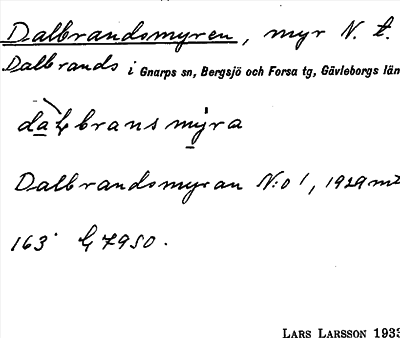 Dalbrandsmyren, myr N. t.
Dalbrands i Gnarps sn, Bergsjö och Forsa tg, Gävleborgs län
dalbransmyra
Dalbrandsmyran N:o 1, 1929
163 7950.
LARS LARSSON 1933